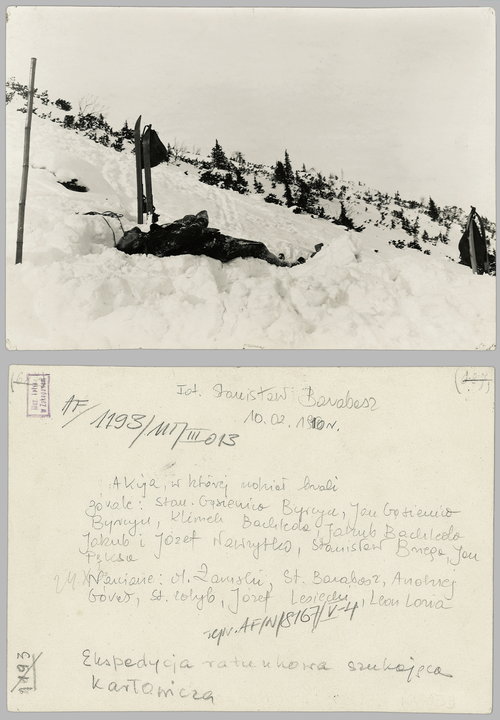 fot. Stanisław Barabasz
10.02. 1910r.
AF/1193/MT/III 013
Akcja, w której udział brali
górale: Stan. Gąsienica Byrcyn, Jan Gąsienica
Byrcyn, Klimek Bachleda, Jakub Bachleda
Jakub i Józef Wawrytko, Stanisław Jan
24.X
M. Zaruski, St. Barabasz, Andrzej
St. Zdyb, Józef Lesiecki, Leon Loria
repr. AF/N/8167/V-4
Ekspedycja ratunkowa szukająca
Karłowicza
1193